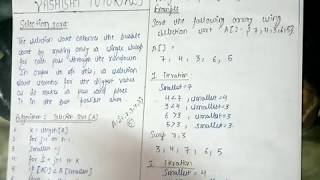 YASHASHI TUTORIALS
Selection sort
The selection sort enhances the bubble
sort by making only a single swap
for each pass through the rundown.
In order to do this, a selection
sort searches for the biggest value
as it makes a pass and places
it in the best possible area.
Algorithm: Selection sort (A)
1 k ← length[A]
2 for j ← 1 to n-1
3 smallest ← j
4 for i ← j+1 to k
5 if A[i] < A[smallest]
Example
Sort the following array using
selection sort A[] = {7,4,3,6,5}
A[] =
7, 4, 3, 6, 5
I Iteration
Smallest = 7
4 < 7, smallest = 4
3 < 4, smallest = 3
6 > 3, smallest = 3
5 > 3, smallest = 3
Swap 7,3
3, 4, 7, 6, 5
Iteration
Smallest = 4